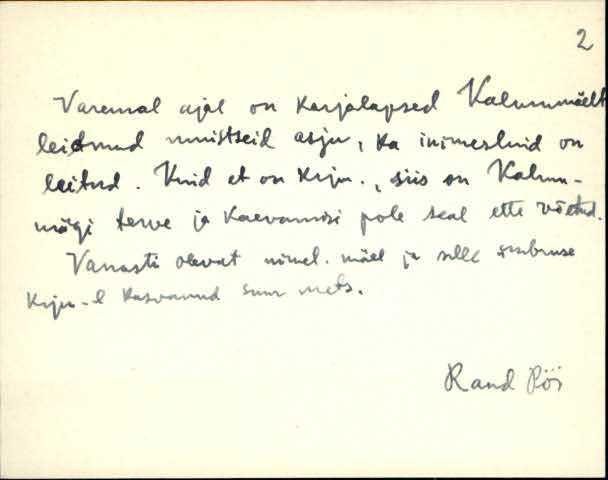 2
Varemal ajal on karjalapsed Kalmumäelt
leidnud muistseid asju, ka inimesluid on
leitud. Kuid et on kiju., siis on Kalmu-
mägi terve ja kaevamisi pole seal ette võetud.
Vanasti olevat nimet. mäel ja selle ümbruse
kiju-l kasvanud suur mets.
Rand Pöi